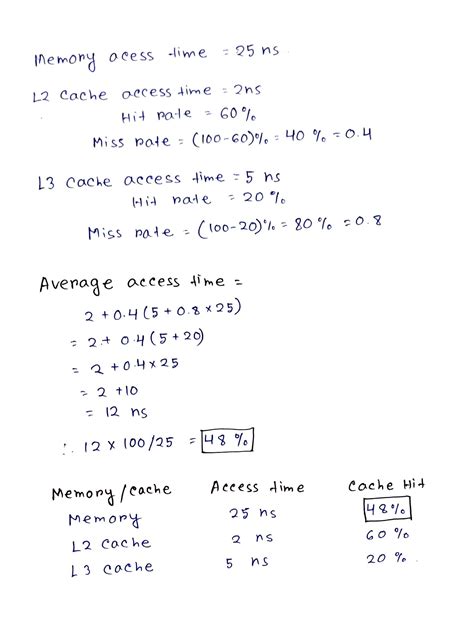 Memory acess time = 25 ns.
L2 cache access time = 2ns
Hit rate = 60%
Miss rate = (100-60)% = 40 % = 0.4
L3 cache access time = 5 ns
Hit rate = 20 %
Miss rate = (100-20)% = 80 % = 0.8
Average access time =
2 + 0.4 (5 + 0.8 × 25)
= 2 + 0.4 (5 + 20)
= 2 + 0.4 × 25
= 2 + 10
= 12 ns
∴ 12 × 100/25 = 48 %
Memory/cache Access time Cache Hit
Memory 25 ns 48%
L2 cache 2 ns 60 %
L3 cache 5 ns 20 %